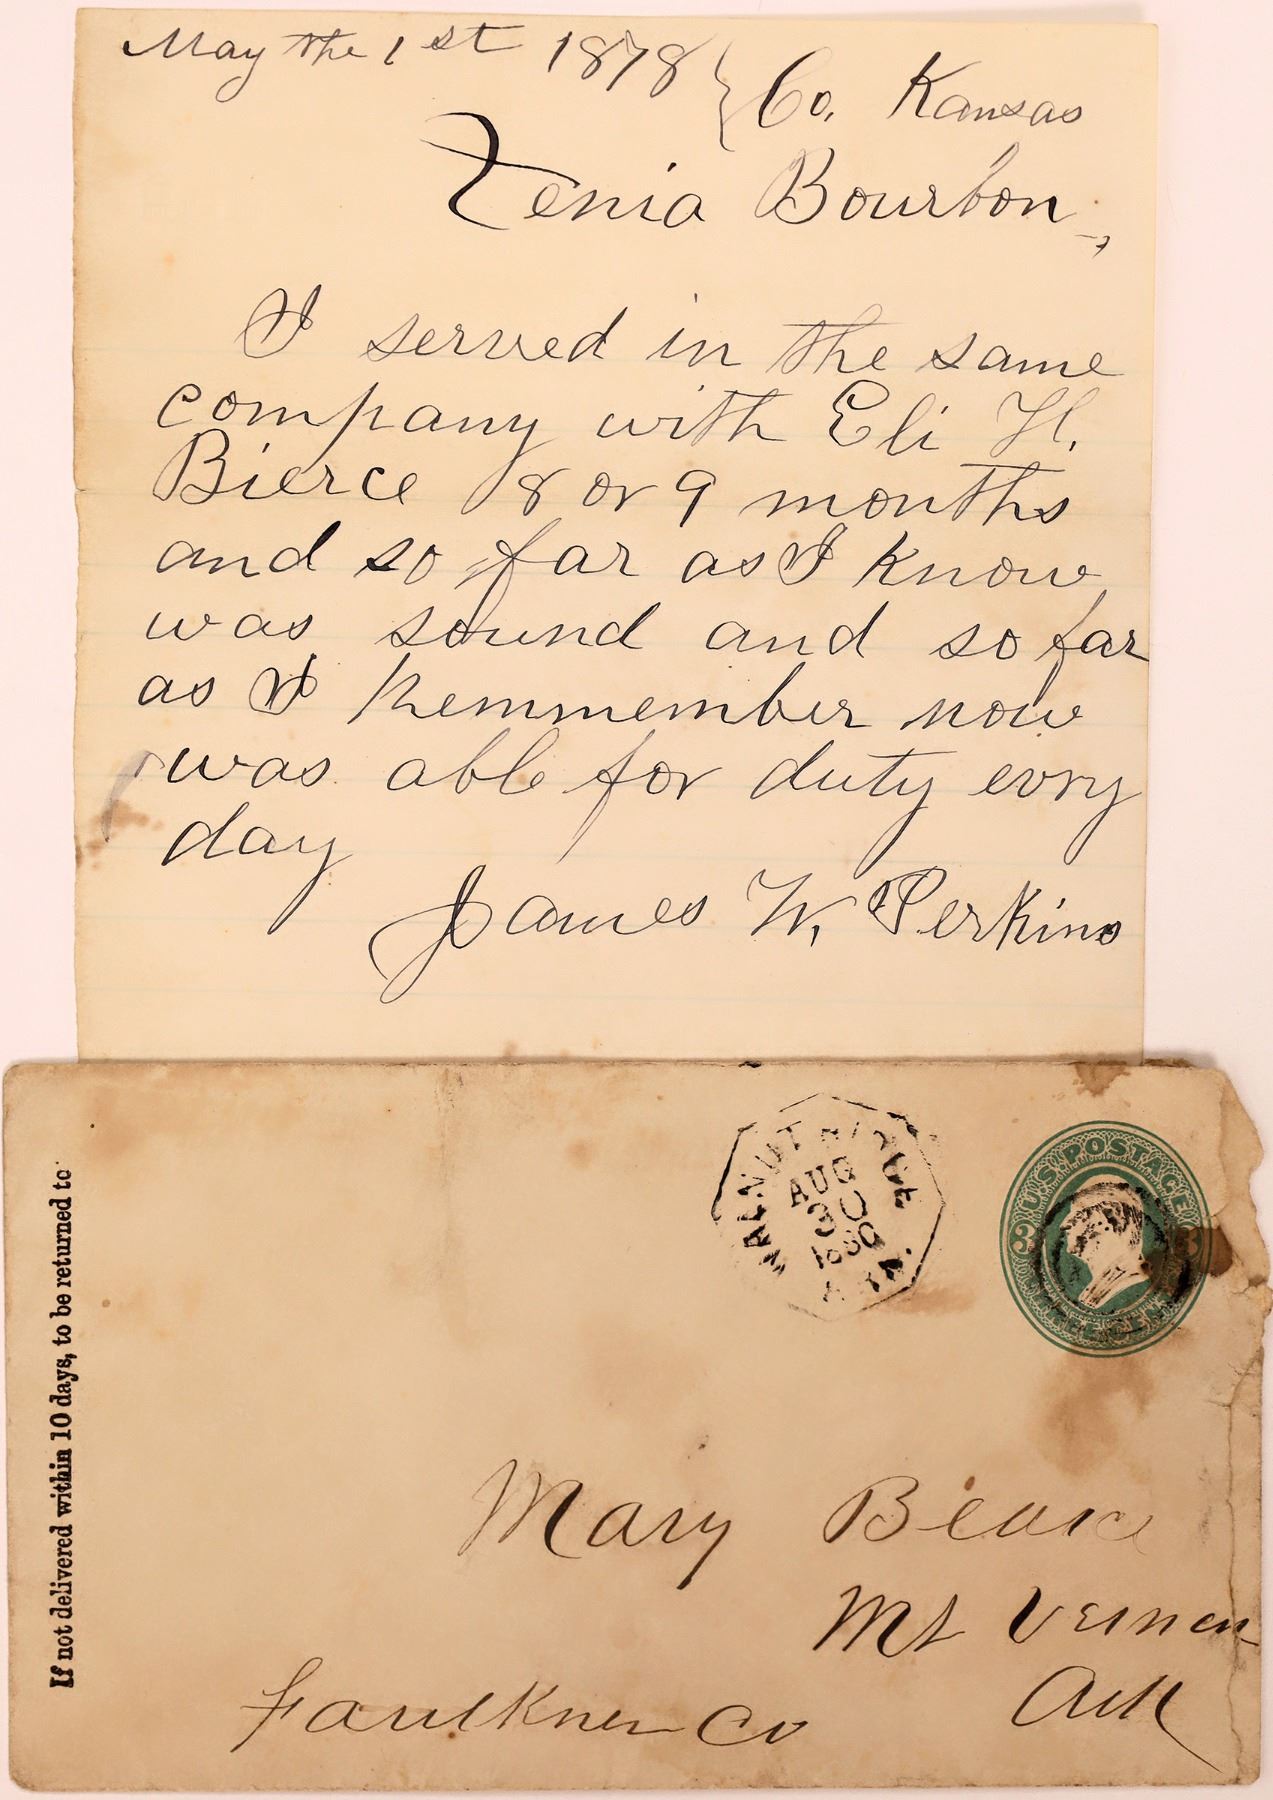 May the 1st 1878 } Co. Kansas
Xenia Bourbon,
I served in the same
company with Eli H.
Bierce 8 or 9 months
and so far as I know
was sound and so far
as I Remmember now
was able for duty evry
day
James W. Perkins
If not delivered within 10 days, to be returned to
WALNUT RIDGE
AUG
30
1880
ARK.
U.S. POSTAGE
3 3
THREE CENTS
Mary Bearce
Mt Vernon
Faulkner Co Ark